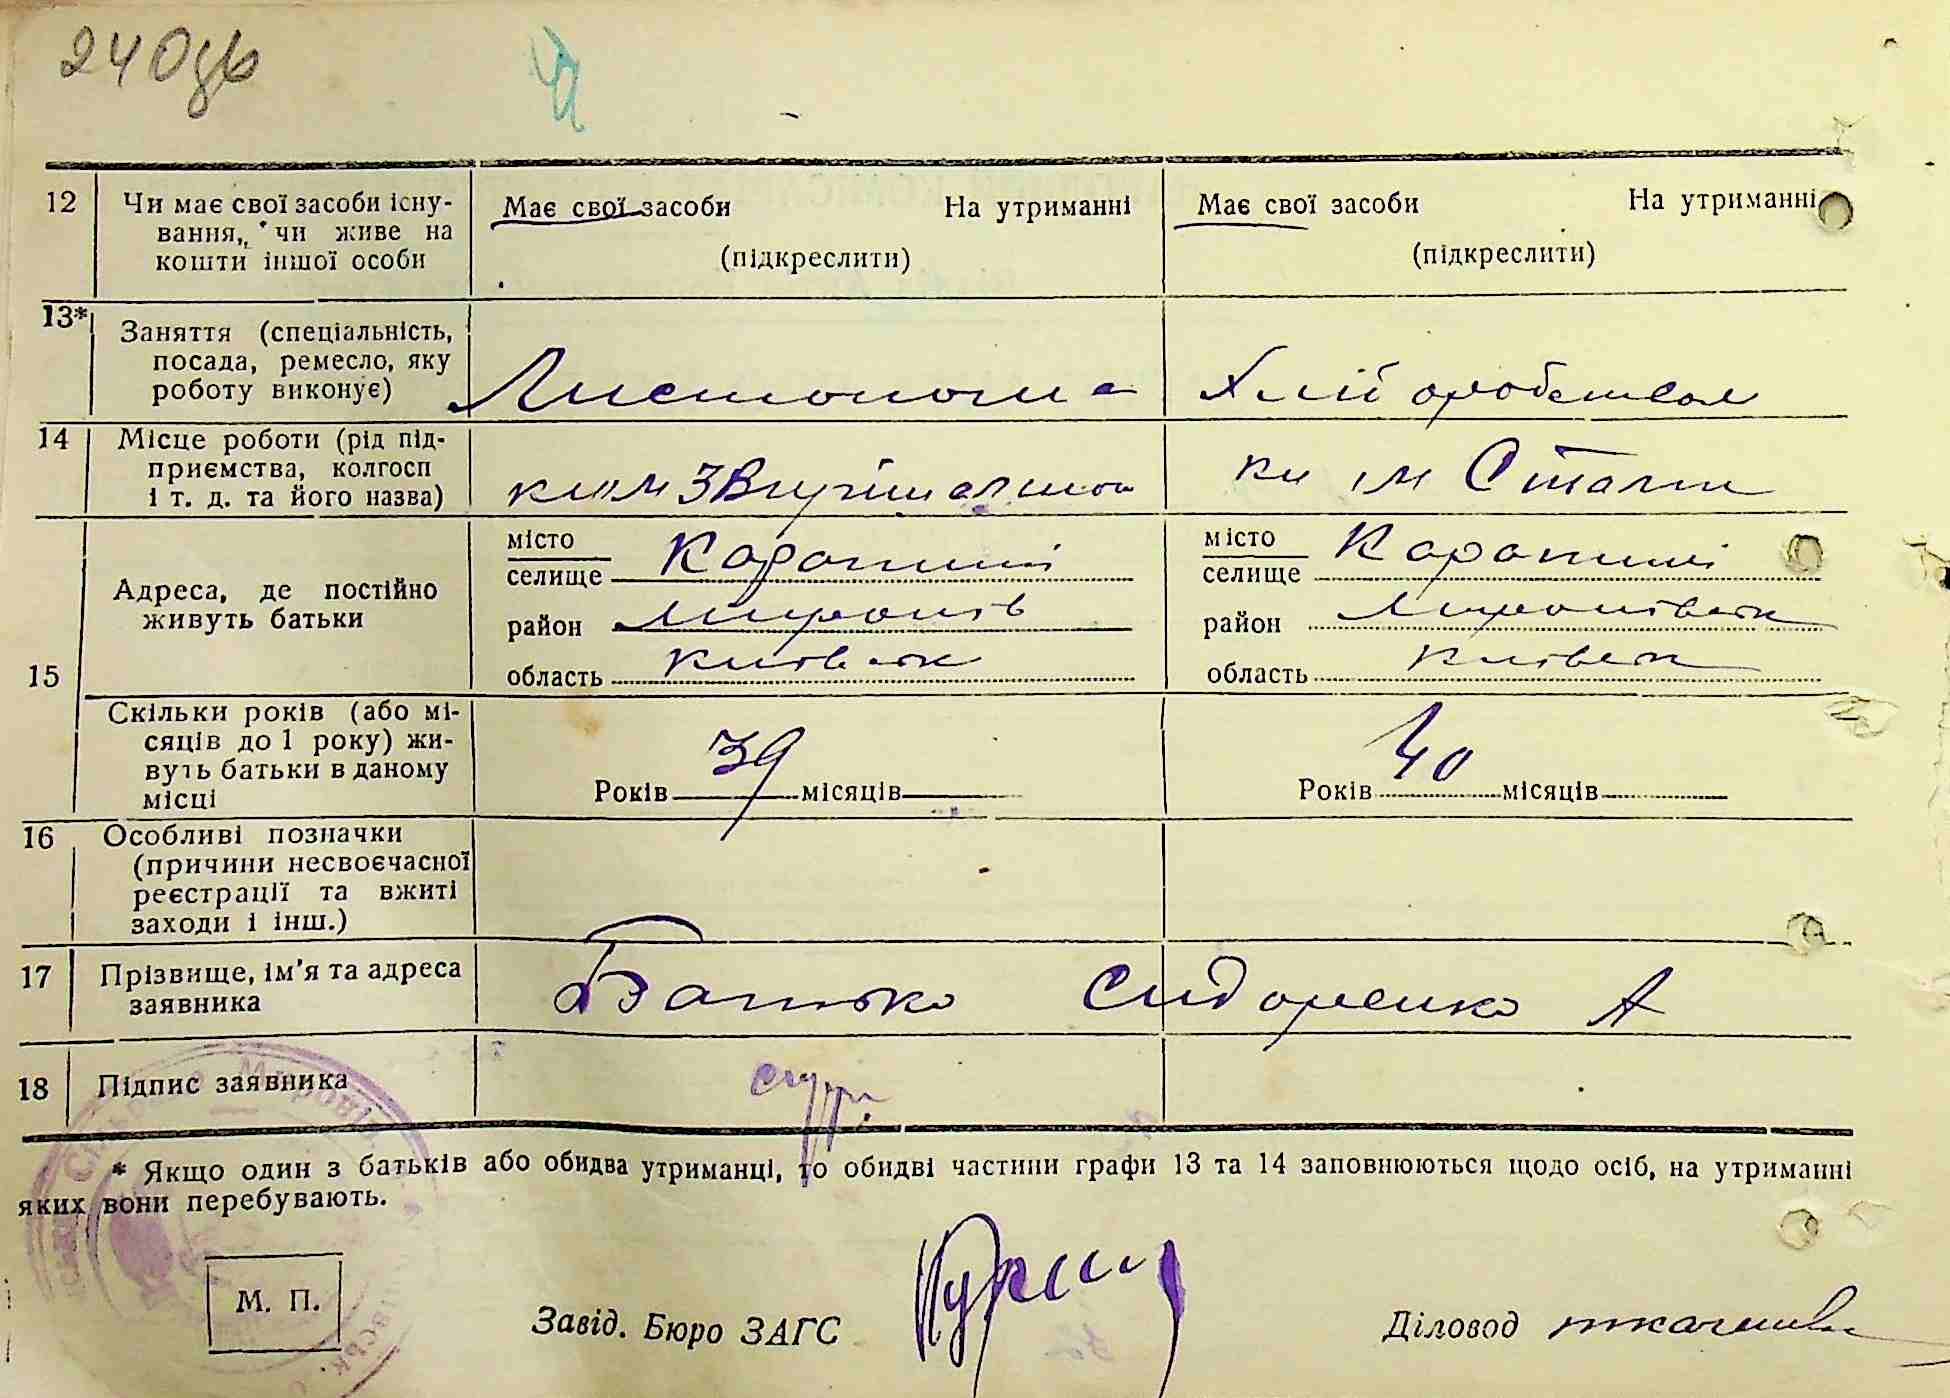 240зв
12
Чи має свої засоби існу-
вання, чи живе на
кошти іншої особи
Має свої засоби На утриманні
(підкреслити)
Має свої засоби На утриманні
(підкреслити)
13*
Заняття (спеціальність,
посада, ремесло, яку
роботу виконує)
Листоноша
Хліборобство
14
Місце роботи (рід під-
приємства, колгосп
і т. д. та його назва)
км ім Сталін
15
Адреса, де постійно
живуть батьки
місто
селище Карапиші
район Миронів
область Київськ
місто
селище Карапиші
район Миронівськ
область Київськ
Скільки років (або мі-
сяців до 1 року) жи-
вуть батьки в даному
місці
Років 39 місяців
Років 40 місяців
16
Особливі позначки
(причини несвоєчасної
реєстрації та вжиті
заходи і інш.)
17
Прізвище, ім'я та адреса
заявника
Батько Сидоренко А
18
Підпис заявника
* Якщо один з батьків або обидва утриманці, то обидві частини графи 13 та 14 заповнюються щодо осіб, на утриманні
яких вони перебувають.
М. П.
Завід. Бюро ЗАГС
Діловод